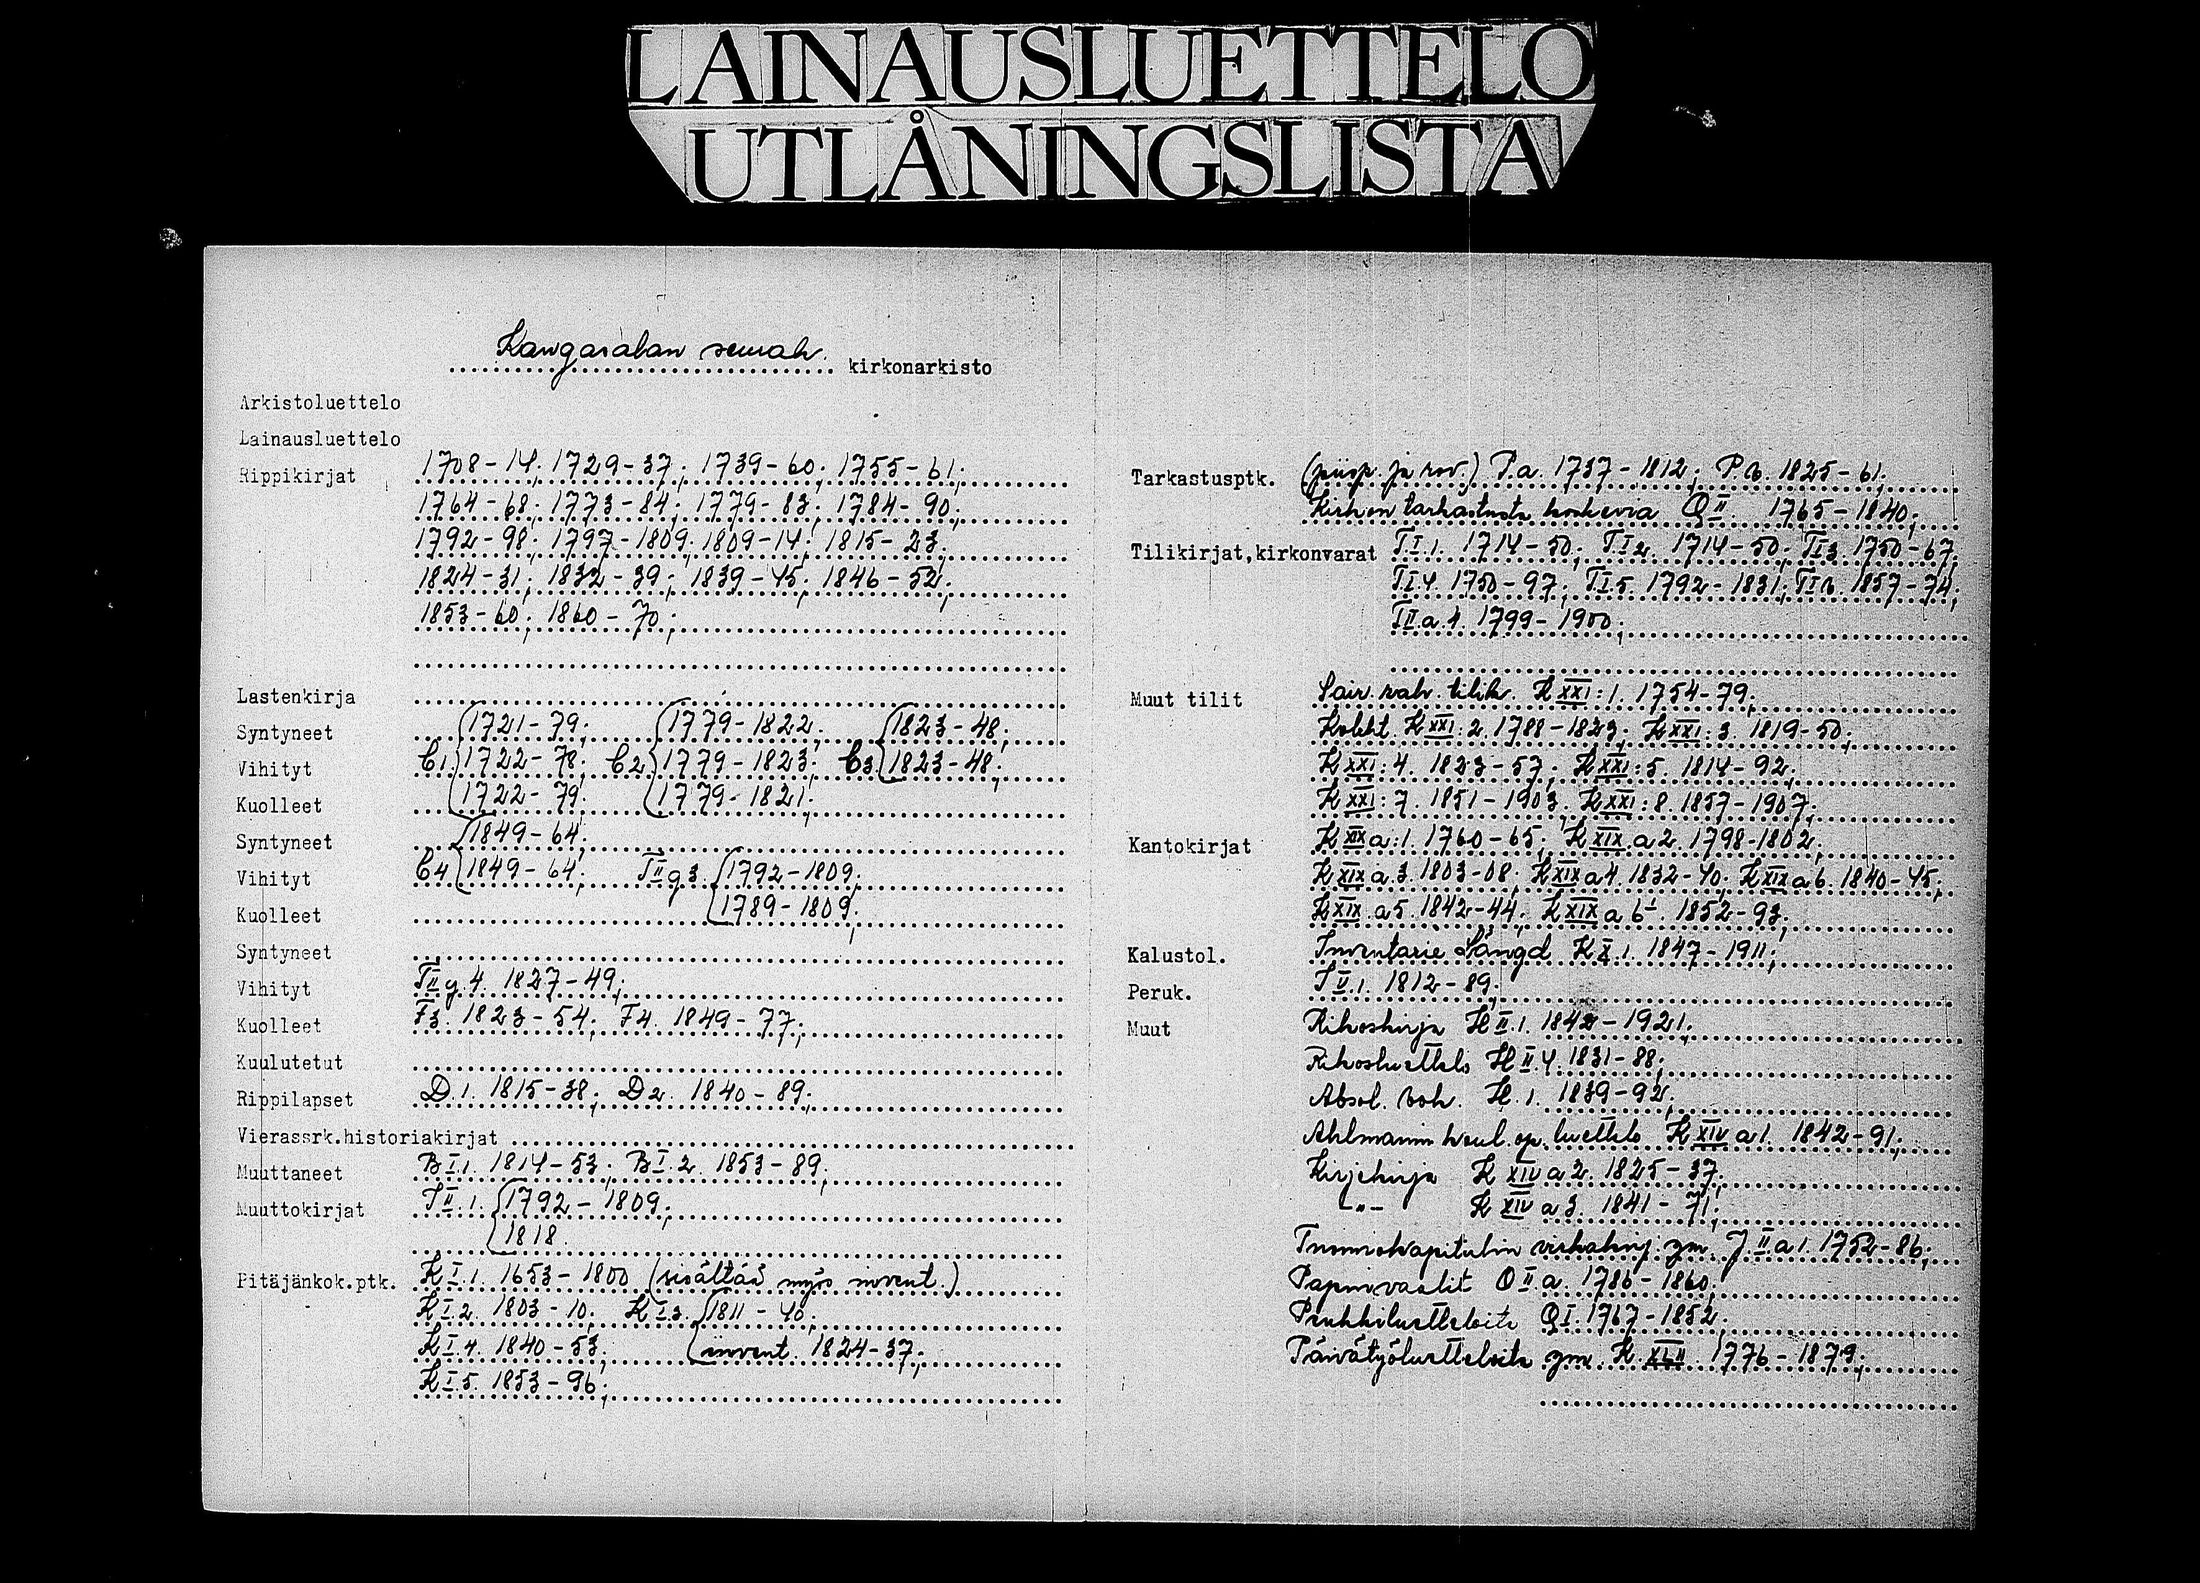 LAINAUSLUETTELO
UTLÅNINGSLISTA
Kangasalan seurak. kirkonarkisto
Arkistoluettelo
Lainausluettelo
Rippikirjat 1708-14; 1729-37; 1739-60; 1755-61;
1764-68; 1773-84; 1779-83; 1784-90;
1792-98; 1797-1809; 1809-14; 1815-23;
1824-31; 1832-39; 1839-45; 1846-52;
1853-60; 1860-70;
Lastenkirja
Syntyneet 1721-79; 1779-1822; 1823-48;
Vihityt C1. 1722-78; C2. 1779-1823; C3 1823-48;
Kuolleet 1722-79; 1779-1821;
Syntyneet 1849-64;
Vihityt C4 1849-64; TII g 3. 1792-1809;
Kuolleet 1789-1809;
Syntyneet
Vihityt TII g. 4. 1827-49;
Kuolleet F3. 1823-54; F4. 1849-77;
Kuulutetut
Rippilapset D.1. 1815-38; D2. 1840-89;
Vierassrk.historiakirjat
Muuttaneet B I.1. 1814-53; B I.2. 1853-89;
Muuttokirjat J II.1. 1792-1809;
1818.
Pitäjänkok.ptk. K I.1. 1653-1800 (sisältää myös invent.)
K I.2. 1803-10; K I.3. 1811-40;
K I.4. 1840-53; invent. 1824-37;
K I.5. 1853-96;
Tarkastusptk. (piisp. ja rov.) P.a. 1737-1812; P.b. 1825-61;
Kirkon tarkastusta koskevia Q II 1765-1840;
Tilikirjat,kirkonvarat T.I.1. 1714-50; T.I.2. 1714-50; T I 3. 1750-67;
T I.4. 1750-97; T I.5. 1792-1831; T I 6. 1857-74;
T II.a.1. 1799-1900;
Muut tilit Sair. rah. tilik. K XXI:1. 1754-79;
Kolekt. K XXI:2. 1788-1823; K XXI:3. 1819-50;
K XXI:4. 1823-57; K XXI:5. 1814-92;
K XXI:7. 1851-1903; K XXI:8. 1857-1907;
Kantokirjat K XIX a:1. 1760-65; K XIX a 2. 1798-1802;
K XIX a.3. 1803-08; K XIX a 4. 1832-40; K XIX a 6. 1840-45;
K XIX.a 5. 1842-44; K XIX a 6¹. 1852-93;
Kalustol. Inventarie Längd K X.1. 1847-1911;
Peruk. J V.1. 1812-89;
Muut Rikoskirja H II.1. 1842-1921;
Rikosluettelo H II.4. 1831-88;
Absol. H.1. 1839-92;
Ahlmannin koul. op. luettelo K XIV a 1. 1842-91;
Kirjekirja K XIV a 2. 1825-37;
-"- K XIV a 3. 1841-71;
Tuomiokapitulin virkakirj. ym. J. II a 1. 1752-86;
Papinvaalit O II a. 1786-1860;
Penkkiluetteloita Q I. 1767-1852;
Päivätyöluetteloita ym. K 1776-1879;